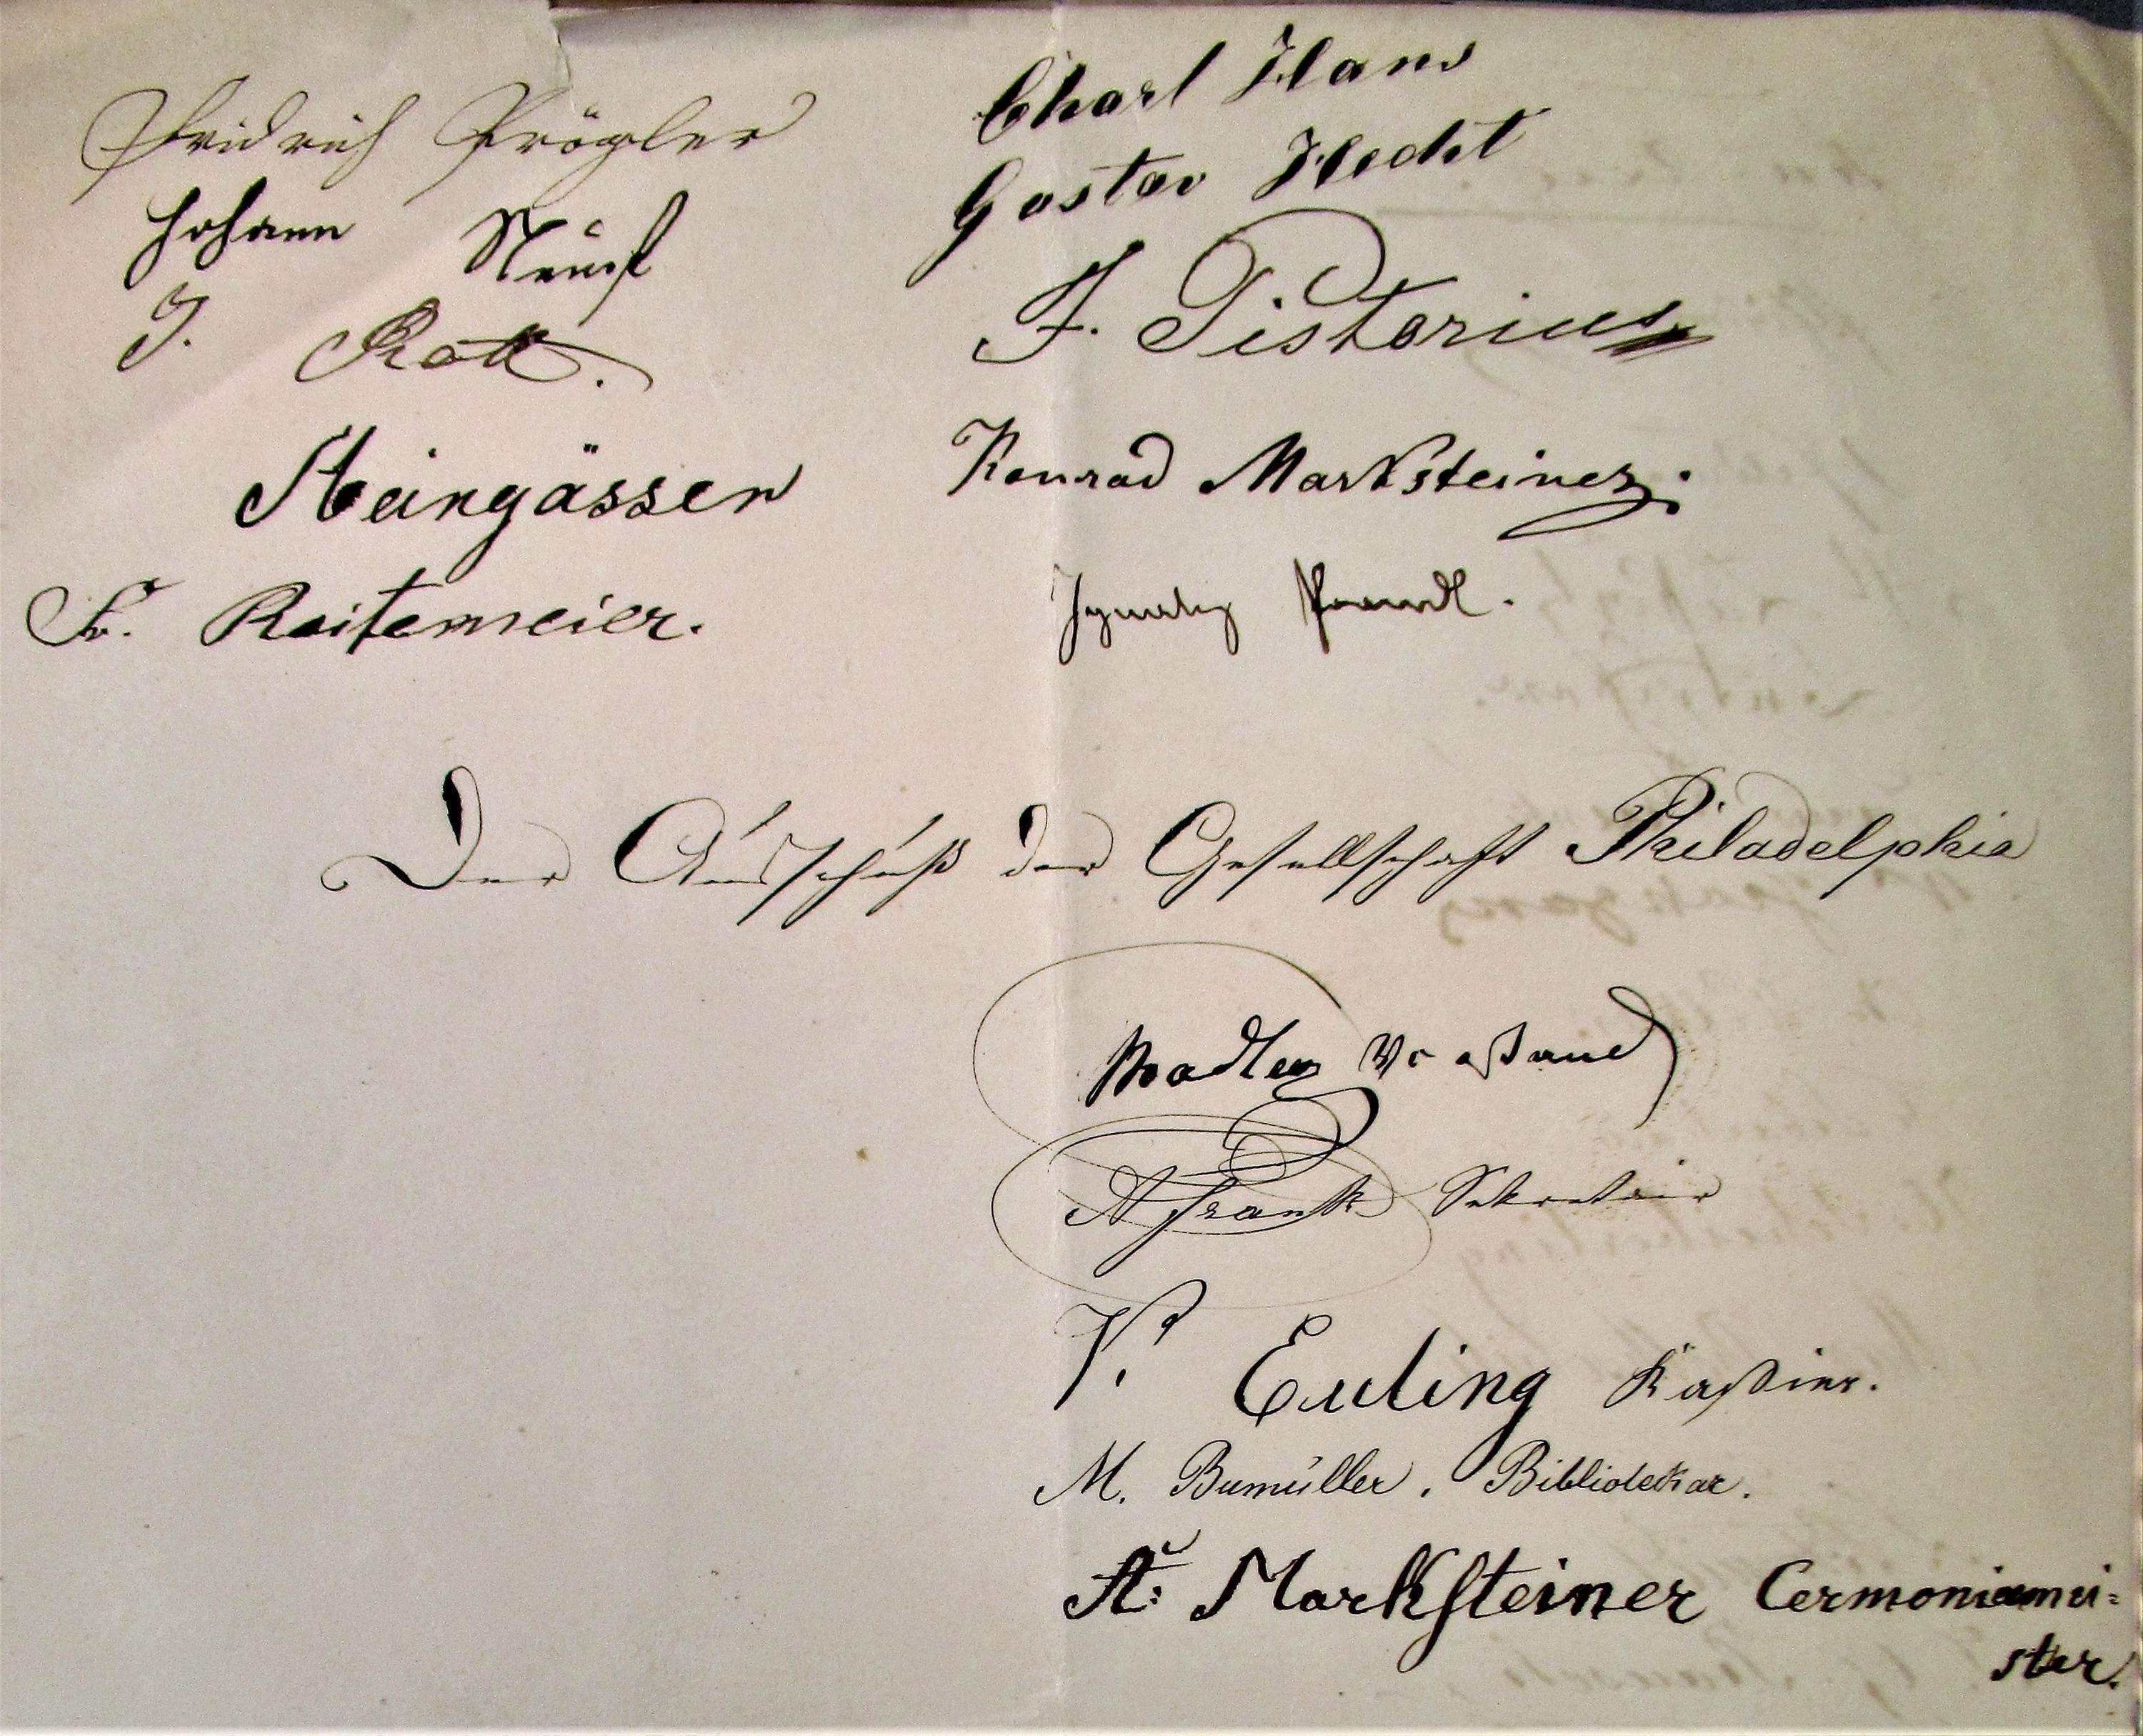 Fridrich Prögler
Johann
J. Rott.
Steingässer
Fr. Reitemeier.
Charl Hans
Gustav Hecht
F. Pistorius
Konrad Marksteiner.
Ignatz Prandl.
Der Ausschuß der Gesellschaft Philadelphia
Madler Vorstand
A Frank Sekretair
V. Euling Kassier.
M. Bumüller, Bibliotekar.
St: Marksteiner Cermoniamei=
ster.